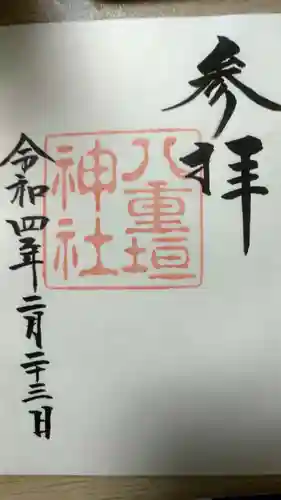 参拝
八重垣
神社
令和四年二月二十三日